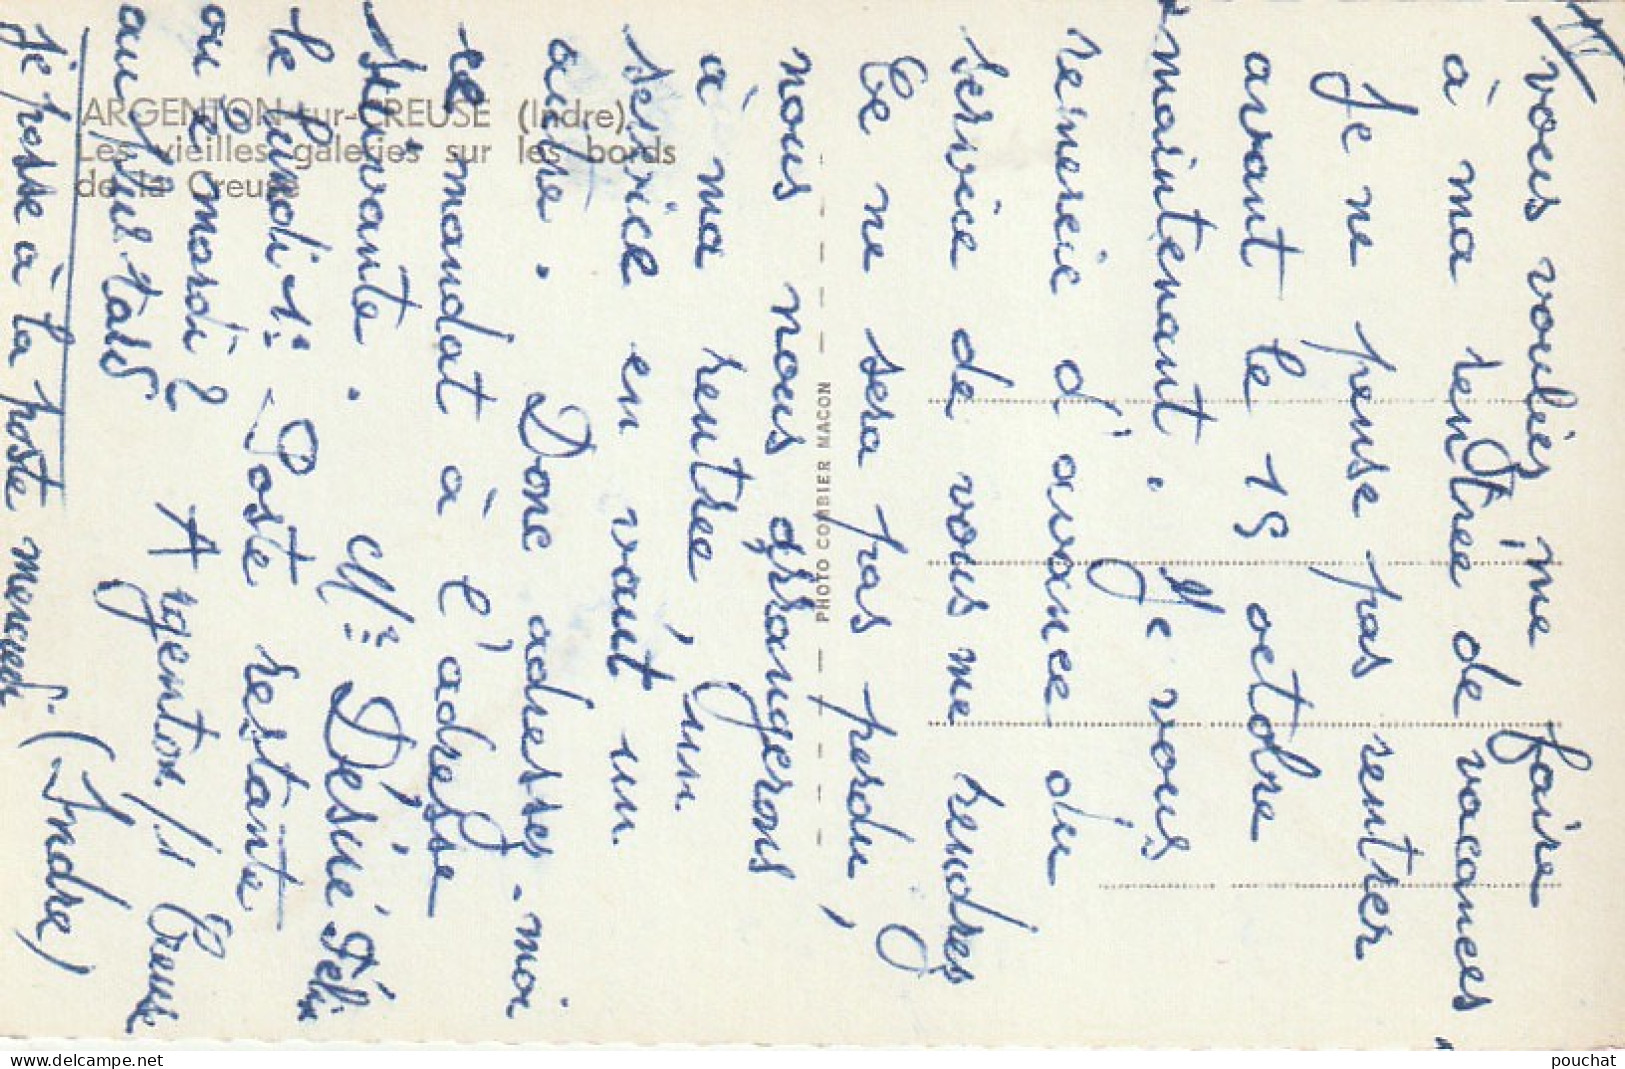 II
vous vouliez me faire
à ma rentrée de vacances
Je ne pense pas rentrer
avant le 15 octobre
maintenant. Je vous
remercie d'avance du
service de vous me rendres
Ce ne sera pas perdu,
nous nous arrangerons
à ma rentrée, un
service en vaut un
autre. Donc adresses-moi
ce mandat à l'adresse
suivante. Mr Désiré Félix
Poste restante
Argenton s/ Creuse
(Indre)
le lundi 1er
ou le mardi 2
au plus tard
je passe à la poste mercredi
ARGENTON-sur-CREUSE (Indre)
Les vieilles galeries sur les bords
de la Creuse
PHOTO COMBIER MACON
www.delcampe.net
pouchat